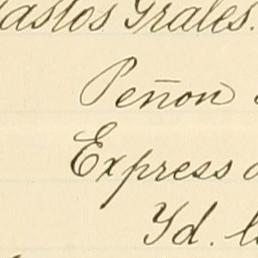 Gastos Grales.
Peñon
Express
Yd.